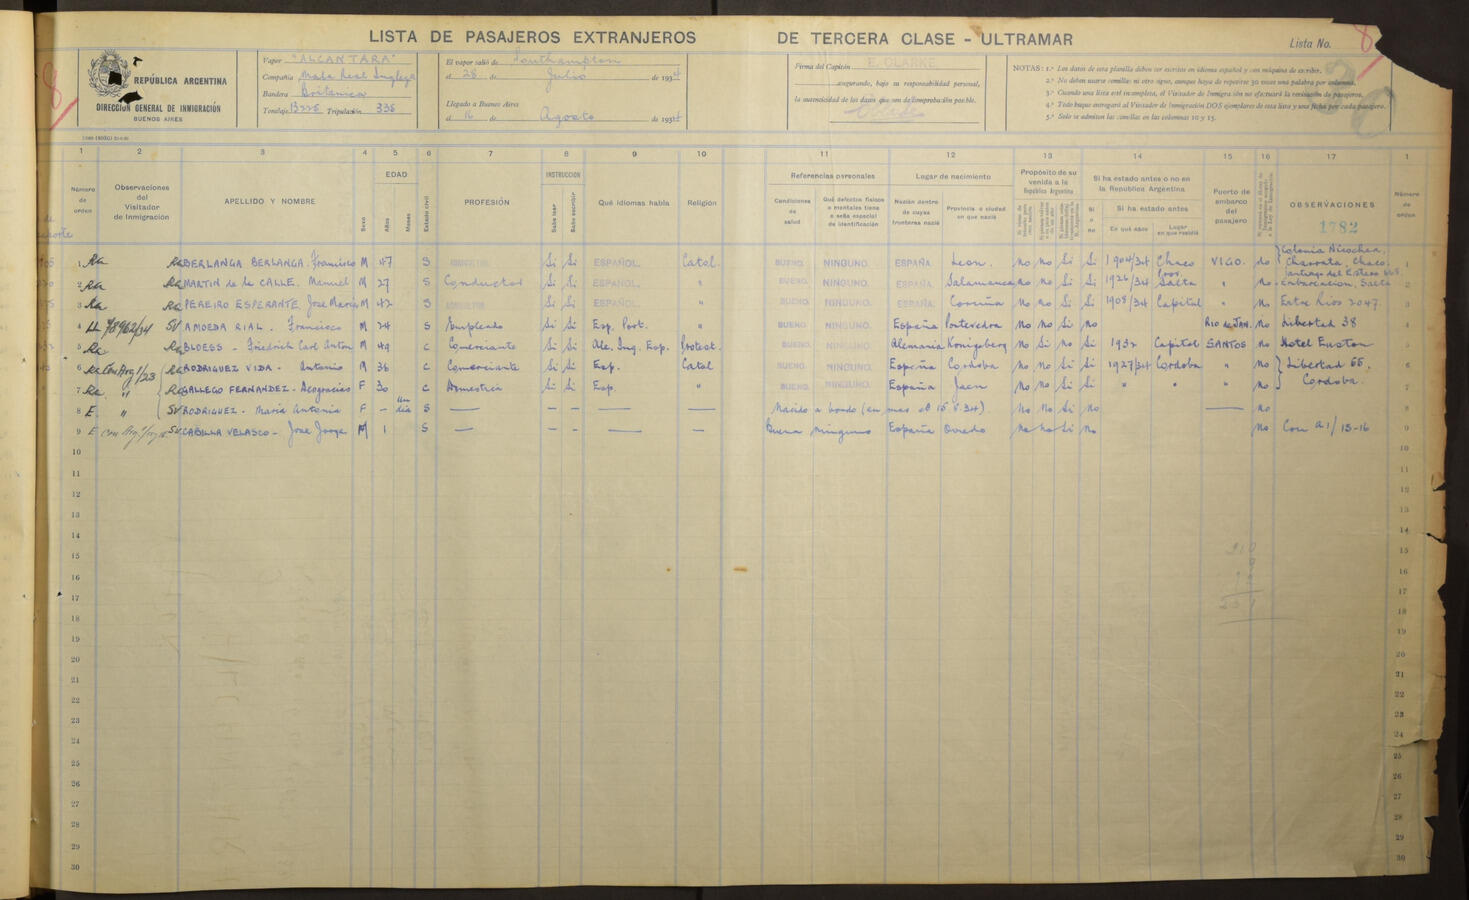 LISTA DE PASAJEROS EXTRANJEROS DE TERCERA CLASE - ULTRAMAR
Lista No. 8
8
REPÚBLICA ARGENTINA
DIRECCIÓN GENERAL DE INMIGRACIÓN
BUENOS AIRES
Vapor "ALCANTARA"
Compañía Mala Real Inglesa
Bandera Britanica
Tonelaje Tripulación 336
El vapor salió de Southampton
el 28 de Julio de 1934
Llegado a Buenos Aires
el 16 de Agosto de 1934
Firma del Capitán E. CLARKE
asegurando, bajo su responsabilidad personal,
la autenticidad de los datos que son de comprobación posible.
NOTAS: 1.ª Los datos de esta planilla deben ser escritos en idioma español y con máquina de escribir.
2.ª No deben usarse comillas ni otro signo, aunque haya de repetirse 30 veces una palabra por columna.
3.ª Cuando una lista esté incompleta, el Visitador de Inmigración no efectuará la revisación de pasajeros.
4.ª Todo buque entregará al Visitador de Inmigración DOS ejemplares de esta lista y una ficha por cada pasajero.
5.ª Solo se admiten las comillas en las columnas 10 y 15.
1 2 3 4 5 6 7 8 9 10 11 12 13 14 15 16 17 1
Número de orden
Observaciones del Visitador de Inmigración
APELLIDO Y NOMBRE
Sexo
EDAD
Años
Meses
Estado civil
PROFESIÓN
INSTRUCCION
Sabe leer
Sabe escribir
Qué idiomas habla
Religión
Referencias personales
Condiciones de salud
Qué defectos físicos o mentales tiene o seña especial de identificación
Lugar de nacimiento
Nación dentro de cuyas fronteras nació
Provincia o ciudad en que nació
Propósito de su venida a la República Argentina
Si ha estado antes o no en la República Argentina
Si o no
Si ha estado antes
En qué años
Lugar en que residió
Puerto de embarco del pasajero
OBSERVACIONES
1782
Número de orden
Colonia Necochea,
1 Ra Ra BERLANGA BERLANGA. Francisco M 47 S Si Si ESPAÑOL. Catol. BUENO. NINGUNO. ESPAÑA. Leon. No No Si Si 1904/34 Chaco VIGO. No Charata, Chaco. 1
2 Ra Ra MARTIN de la CALLE. Manuel M 27 S Conductor Si Si ESPAÑOL. " BUENO. NINGUNO. ESPAÑA. Salamanca No No Si Si 1926/34 Prov. Salta " No Embarcacion, Salta 2
3 Ra Ra PEREIRO ESPERANTE. Jose Maria M 42 S AGRICULTOR Si Si ESPAÑOL. " BUENO. NINGUNO. ESPAÑA. Coruña No No Si Si 1908/34 Capital " No Entre Rios 2047. 3
4 LL 78962/34 SV AMOEDA RIAL. Francisco M 24 S Empleado Si Si Esp. Port. " BUENO NINGUNO. España Pontevedra No No Si No RIO de JAN. No Libertad 38 4
5 Ra Ra BLOESS - Friedrich Carl Anton M 49 C Comerciante Si Si Ale. Ing. Esp. Protest. BUENO. NINGUNO. Alemania Königsberg No Si No Si 1932 Capital SANTOS No Hotel Euston 5
6 Ra Con Arg 1/23 Ra RODRIGUEZ VIDA - Antonio M 36 C Comerciante Si Si Esp. Catol BUENO. NINGUNO. España Cordoba No No Si Si 1927/34 Cordoba " No Libertad 66, 6
7 Ra " Ra GALLEGO FERNANDEZ - Acogracias F 30 C Domestica Si Si Esp. " BUENO. NINGUNO. España Jaen No No Si Si " " " No Cordoba. 7
8 E. " SV RODRIGUEZ - Maria Antonia F - Un dia S — - - — Nacido a bordo (en mar el 15.8.34). No No Si No — No 8
9 E SV CABILLA VELASCO - Jose Jorge M 1 S — - - — Buena ninguno España Oviedo No No Si No No Con a 1/15-16 9
10 10
11 11
12 12
13 13
14 14
15 15
16 16
17 17
18 18
19 19
20 20
21 21
22 22
23 23
24 24
25 25
26 26
27 27
28 28
29 29
30 30